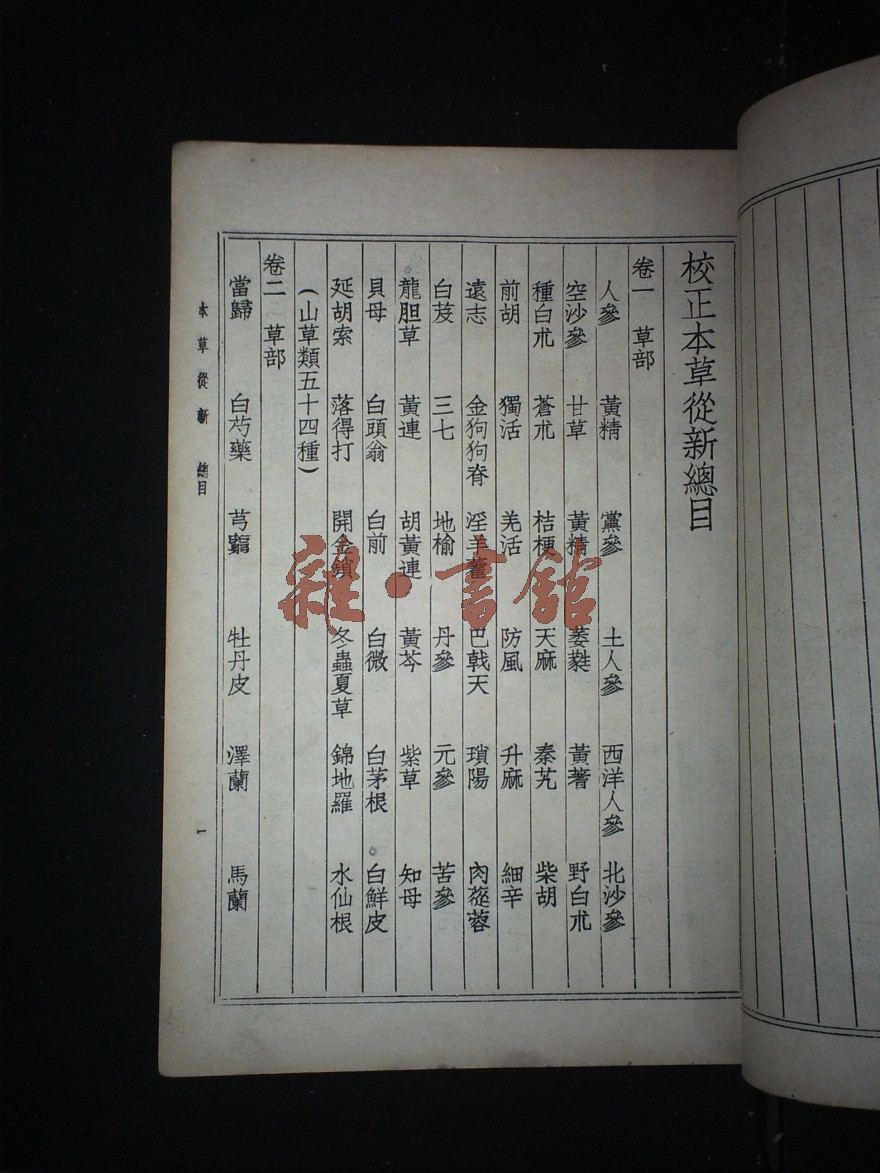 校正本草從新總目
卷一 草部
人參 黃精 黨參 土人參 西洋人參 北沙參
空沙參 甘草 黃精 萎蕤 黃蓍 野白朮
種白朮 蒼朮 桔梗 天麻 秦艽 柴胡
前胡 獨活 羌活 防風 升麻 細辛
遠志 金狗狗脊 淫羊藿 巴戟天 瑣陽 肉蓯蓉
白芨 三七 地榆 丹參 元參 苦參
龍胆草 黃連 胡黃連 黃芩 紫草 知母
貝母 白頭翁 白前 白微 白茅根 白鮮皮
延胡索 落得打 開金鎖 冬蟲夏草 錦地羅 水仙根
(山草類五十四種)
卷二 草部
當歸 白芍藥 芎藭 牡丹皮 澤蘭 馬蘭
本草從新 總目 1
雜·書館